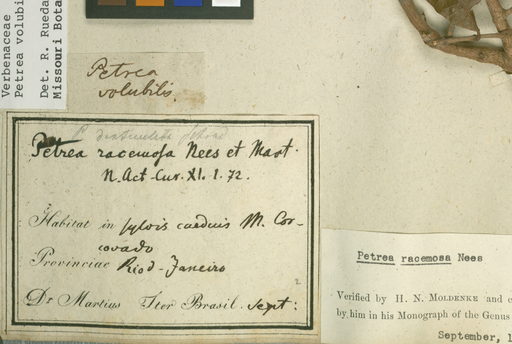 Verbenaceae
Petrea volubi
Det. R. Rueda
Missouri Bota
Petrea
volubilis.
Petrea racemosa Nees et Mart.
N. Act. Cur. XI. 1. 72.
Habitat in sylvis caeduis M. Cor-
covado
Provinciae Rio d-Janeiro
2
Dr Martius Iter Brasil. Sept:
Petrea racemosa Nees
Verified by H. N. MOLDENKE and c
by him in his Monograph of the Genus
September, 1